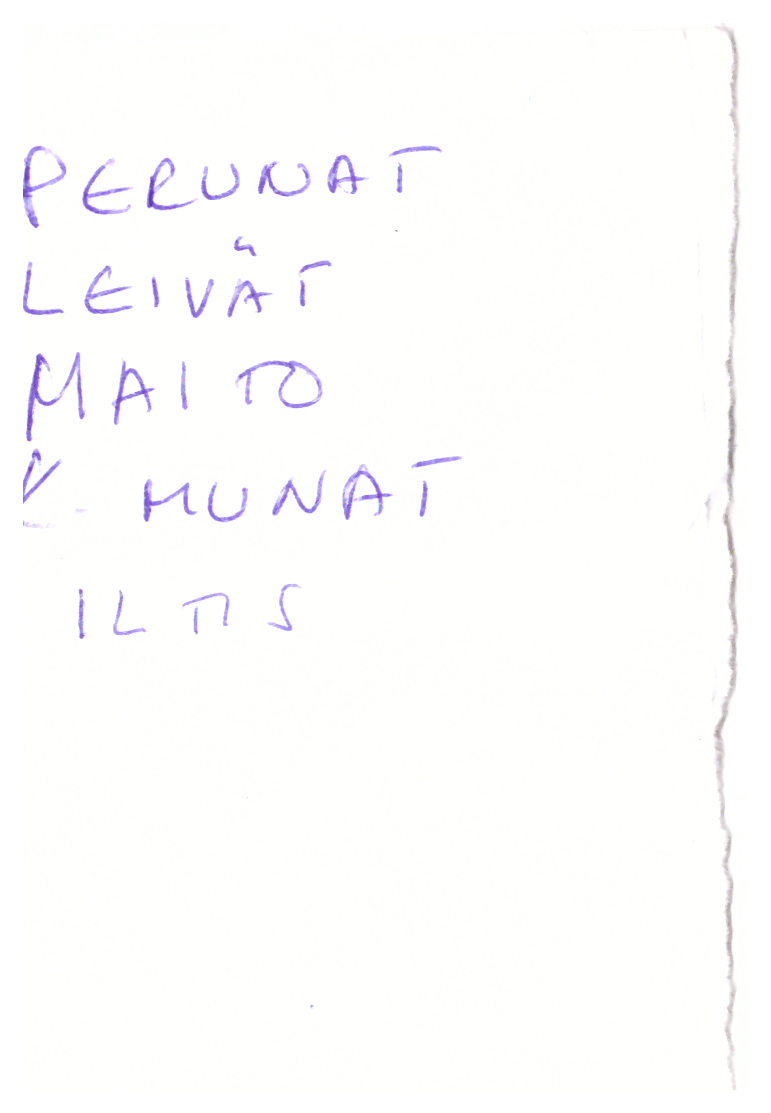 PERUNAT
LEIVÄT
MAITO
MUNAT